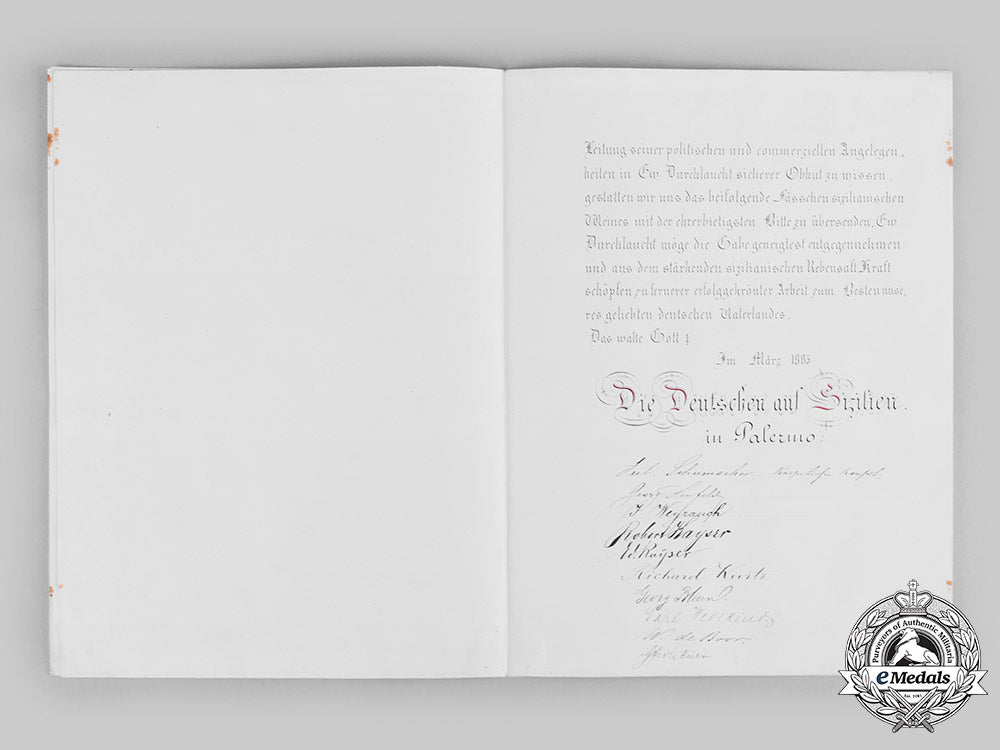 Leitung seiner politischen und commerziellen Angelegen-
heiten in Ew. Durchlaucht sicherer Obhut zu wissen,
gestatten wir uns, das beifolgende Fässchen sizilianischen
Weines mit der ehrerbietigsten Bitte zu übersenden, Ew
Durchlaucht möge die Gabe geneigtest entgegennehmen
und aus dem stärkenden sizilianischen Rebensaft Kraft
schöpfen zu fernerer erfolggekrönter Arbeit zum Besten unse-
res geliebten deutschen Vaterlandes.
Das walte Gott!
Im März 1885
Die Deutschen auf Sizilien.
in Palermo:
Schumacher
Georg
Weyraugh
Robert Kayser
W. Kayser
Richard Kurtz
Georg
Carl
W. de Boor.
Purveyors of Authentic Militaria
eMedals